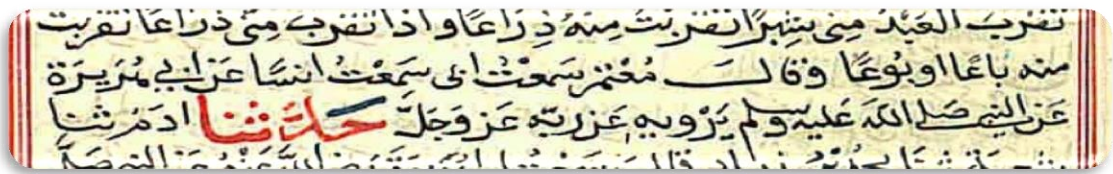 تقرب العبد مني شبرا تقربت منه ذراعا واذا تقرب مني ذراعا تقربت
منه باعا او بوعا وقال معتمر سمعت ابي سمعت انسا عن ابي هريرة
عن النبي صلى الله عليه وسلم يرويه عن ربه عز وجل حدثنا ادم ثنا